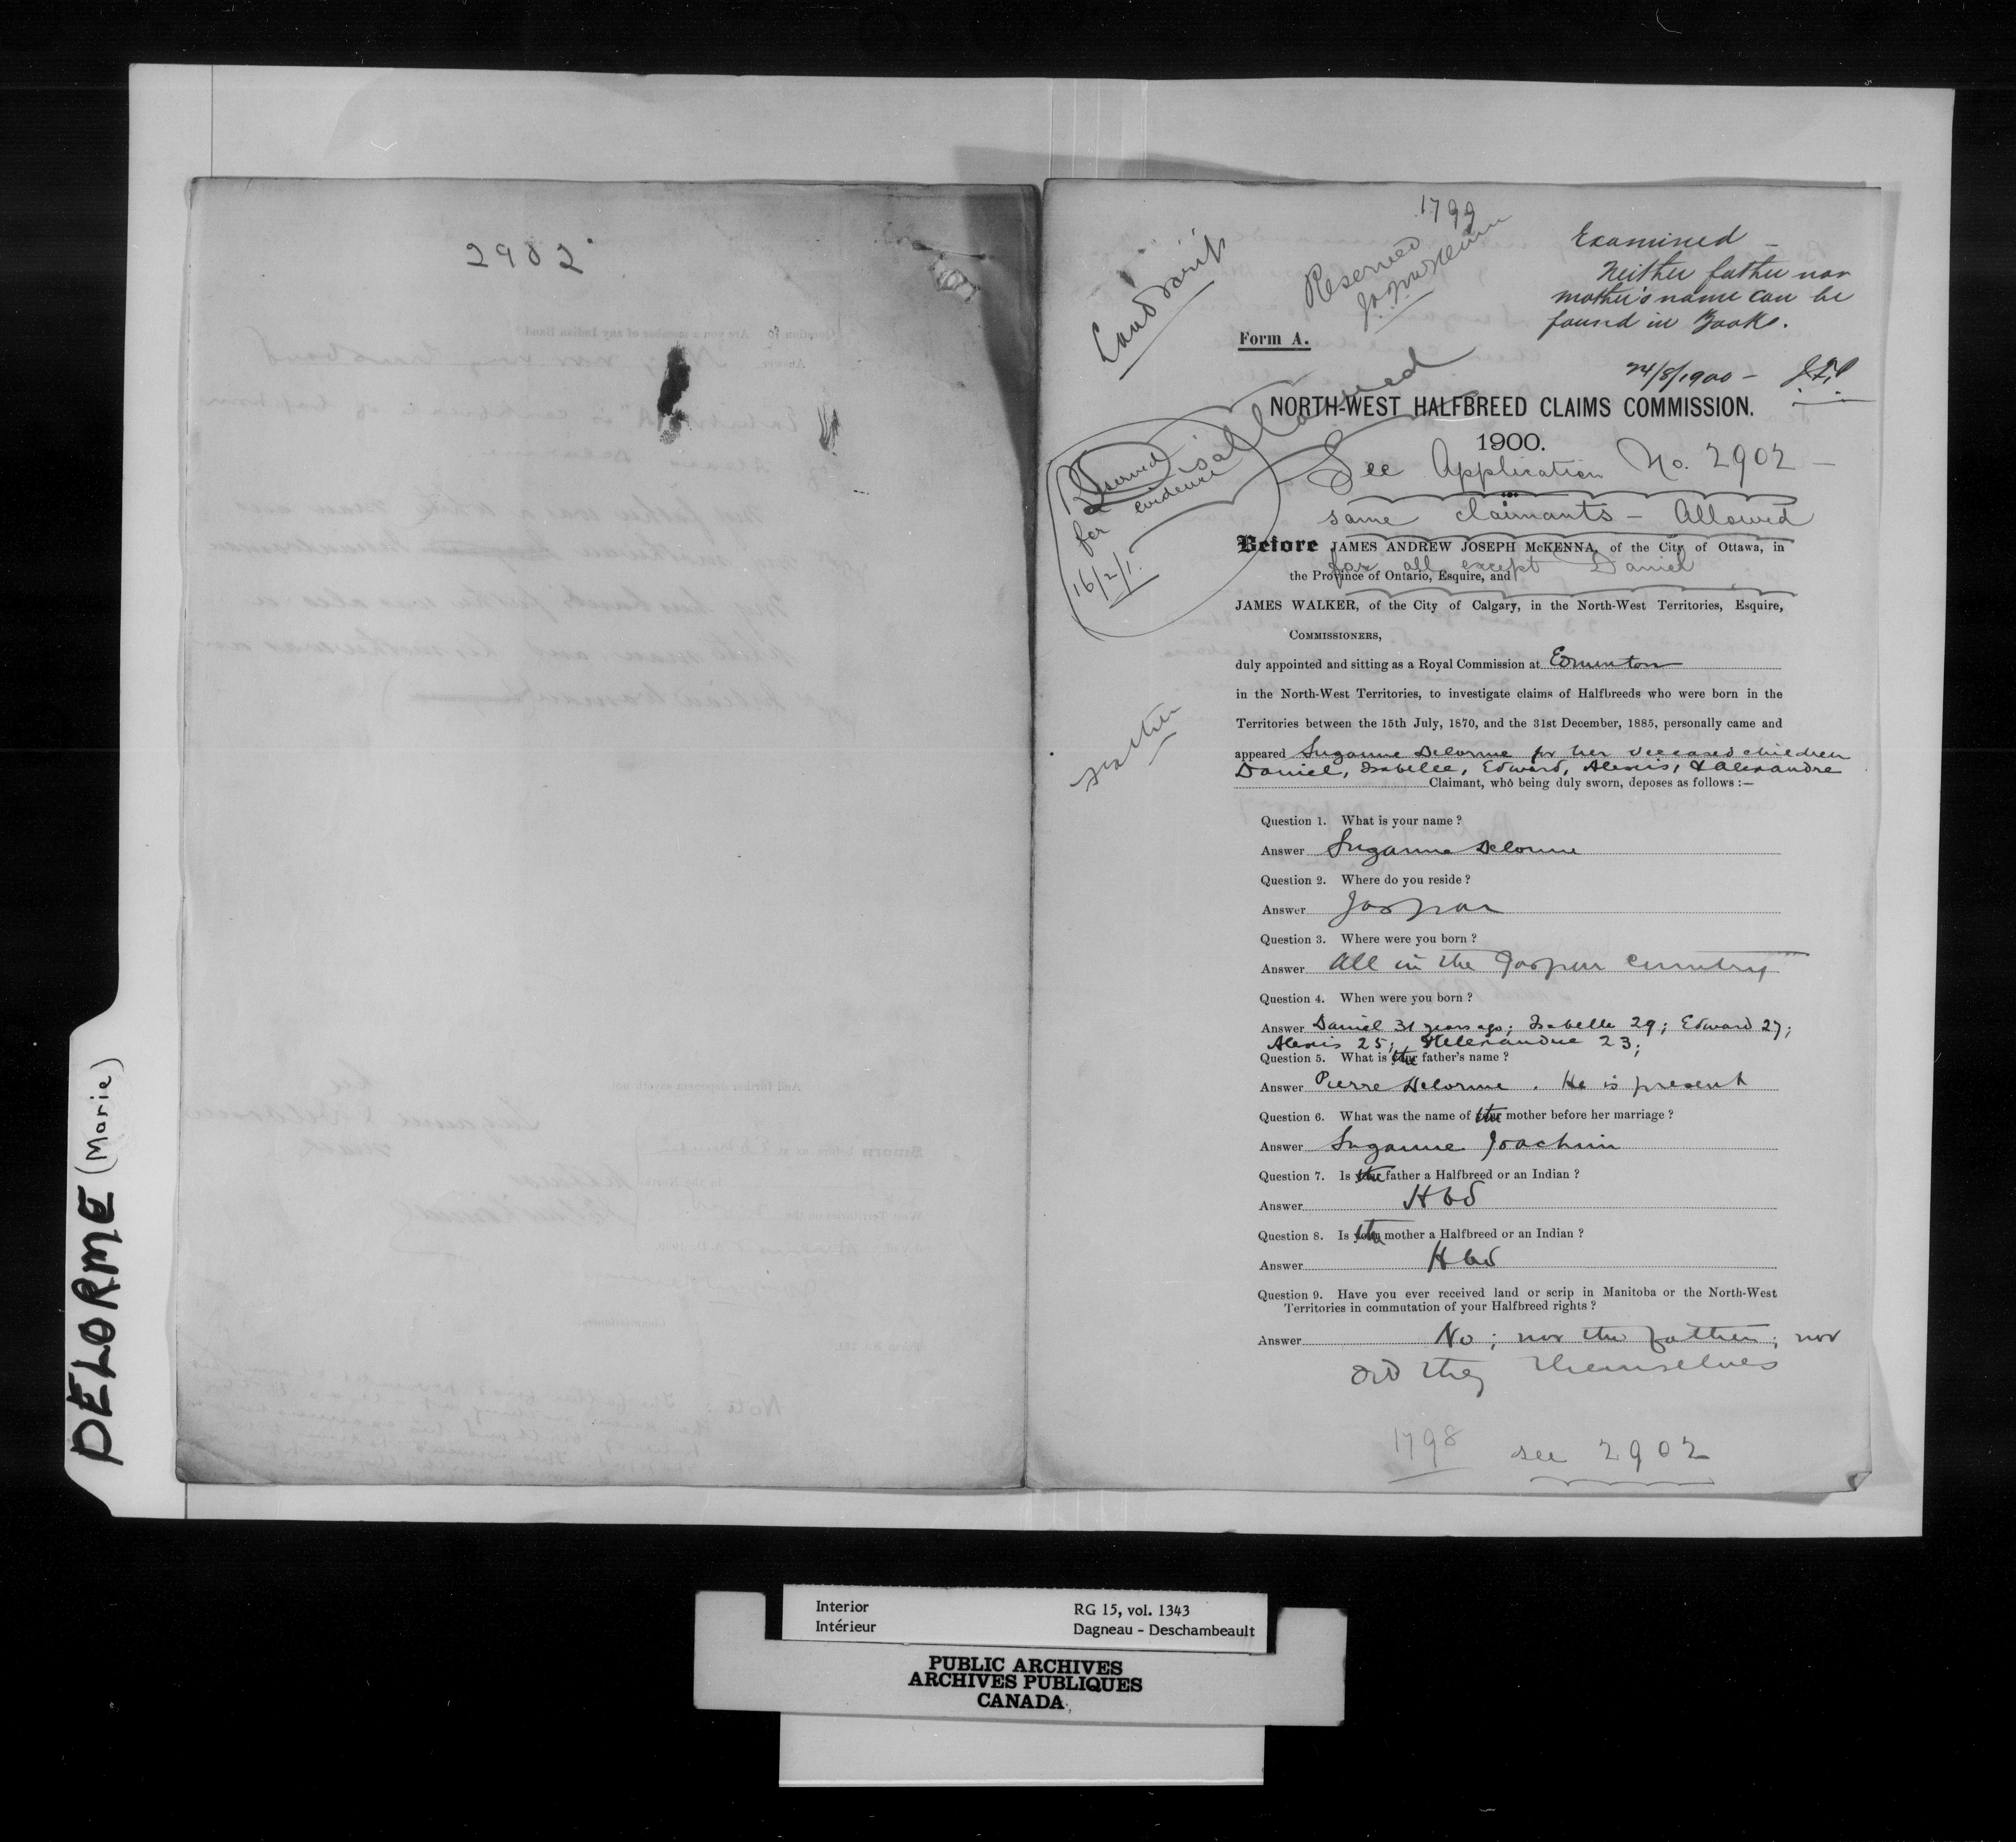 2902
DELORME (Marie)
1799
Land Scrip
Reserved
Examined –
Neither father nor
mother's name can be
found in Books.
Form A.
24/8/1900 –
Disallowed
NORTH-WEST HALFBREED CLAIMS COMMISSION.
1900.
See Application No. 2902 –
same claimants – Allowed
for all except Daniel
Reserved
for evidence
16/2/1.
Before JAMES ANDREW JOSEPH McKENNA, of the City of Ottawa, in
the Province of Ontario, Esquire, and
JAMES WALKER, of the City of Calgary, in the North-West Territories, Esquire,
COMMISSIONERS,
duly appointed and sitting as a Royal Commission at Edmonton
in the North-West Territories, to investigate claims of Halfbreeds who were born in the
Territories between the 15th July, 1870, and the 31st December, 1885, personally came and
appeared Suzanne Delorme for her deceased children
Daniel, Isabelle, Edward, Alexis, & Alexandre
Claimant, who being duly sworn, deposes as follows :—
Question 1. What is your name ?
Answer Suzanne Delorme
Question 2. Where do you reside ?
Answer Jaspar
Question 3. Where were you born ?
Answer All in the Jasper country
Question 4. When were you born ?
Answer Daniel 31 years ago; Isabelle 29; Edward 27;
Alexis 25; Alexandre 23;
Question 5. What is the father's name ?
Answer Pierre Delorme. He is present
Question 6. What was the name of the mother before her marriage ?
Answer Suzanne Joachim
Question 7. Is the father a Halfbreed or an Indian ?
Answer Hbd
Question 8. Is the mother a Halfbreed or an Indian ?
Answer Hbd
Question 9. Have you ever received land or scrip in Manitoba or the North-West
Territories in commutation of your Halfbreed rights ?
Answer No; nor the father; nor
did they themselves
1798 see 2902
Interior RG 15, vol. 1343
Intérieur Dagneau - Deschambeault
PUBLIC ARCHIVES
ARCHIVES PUBLIQUES
CANADA